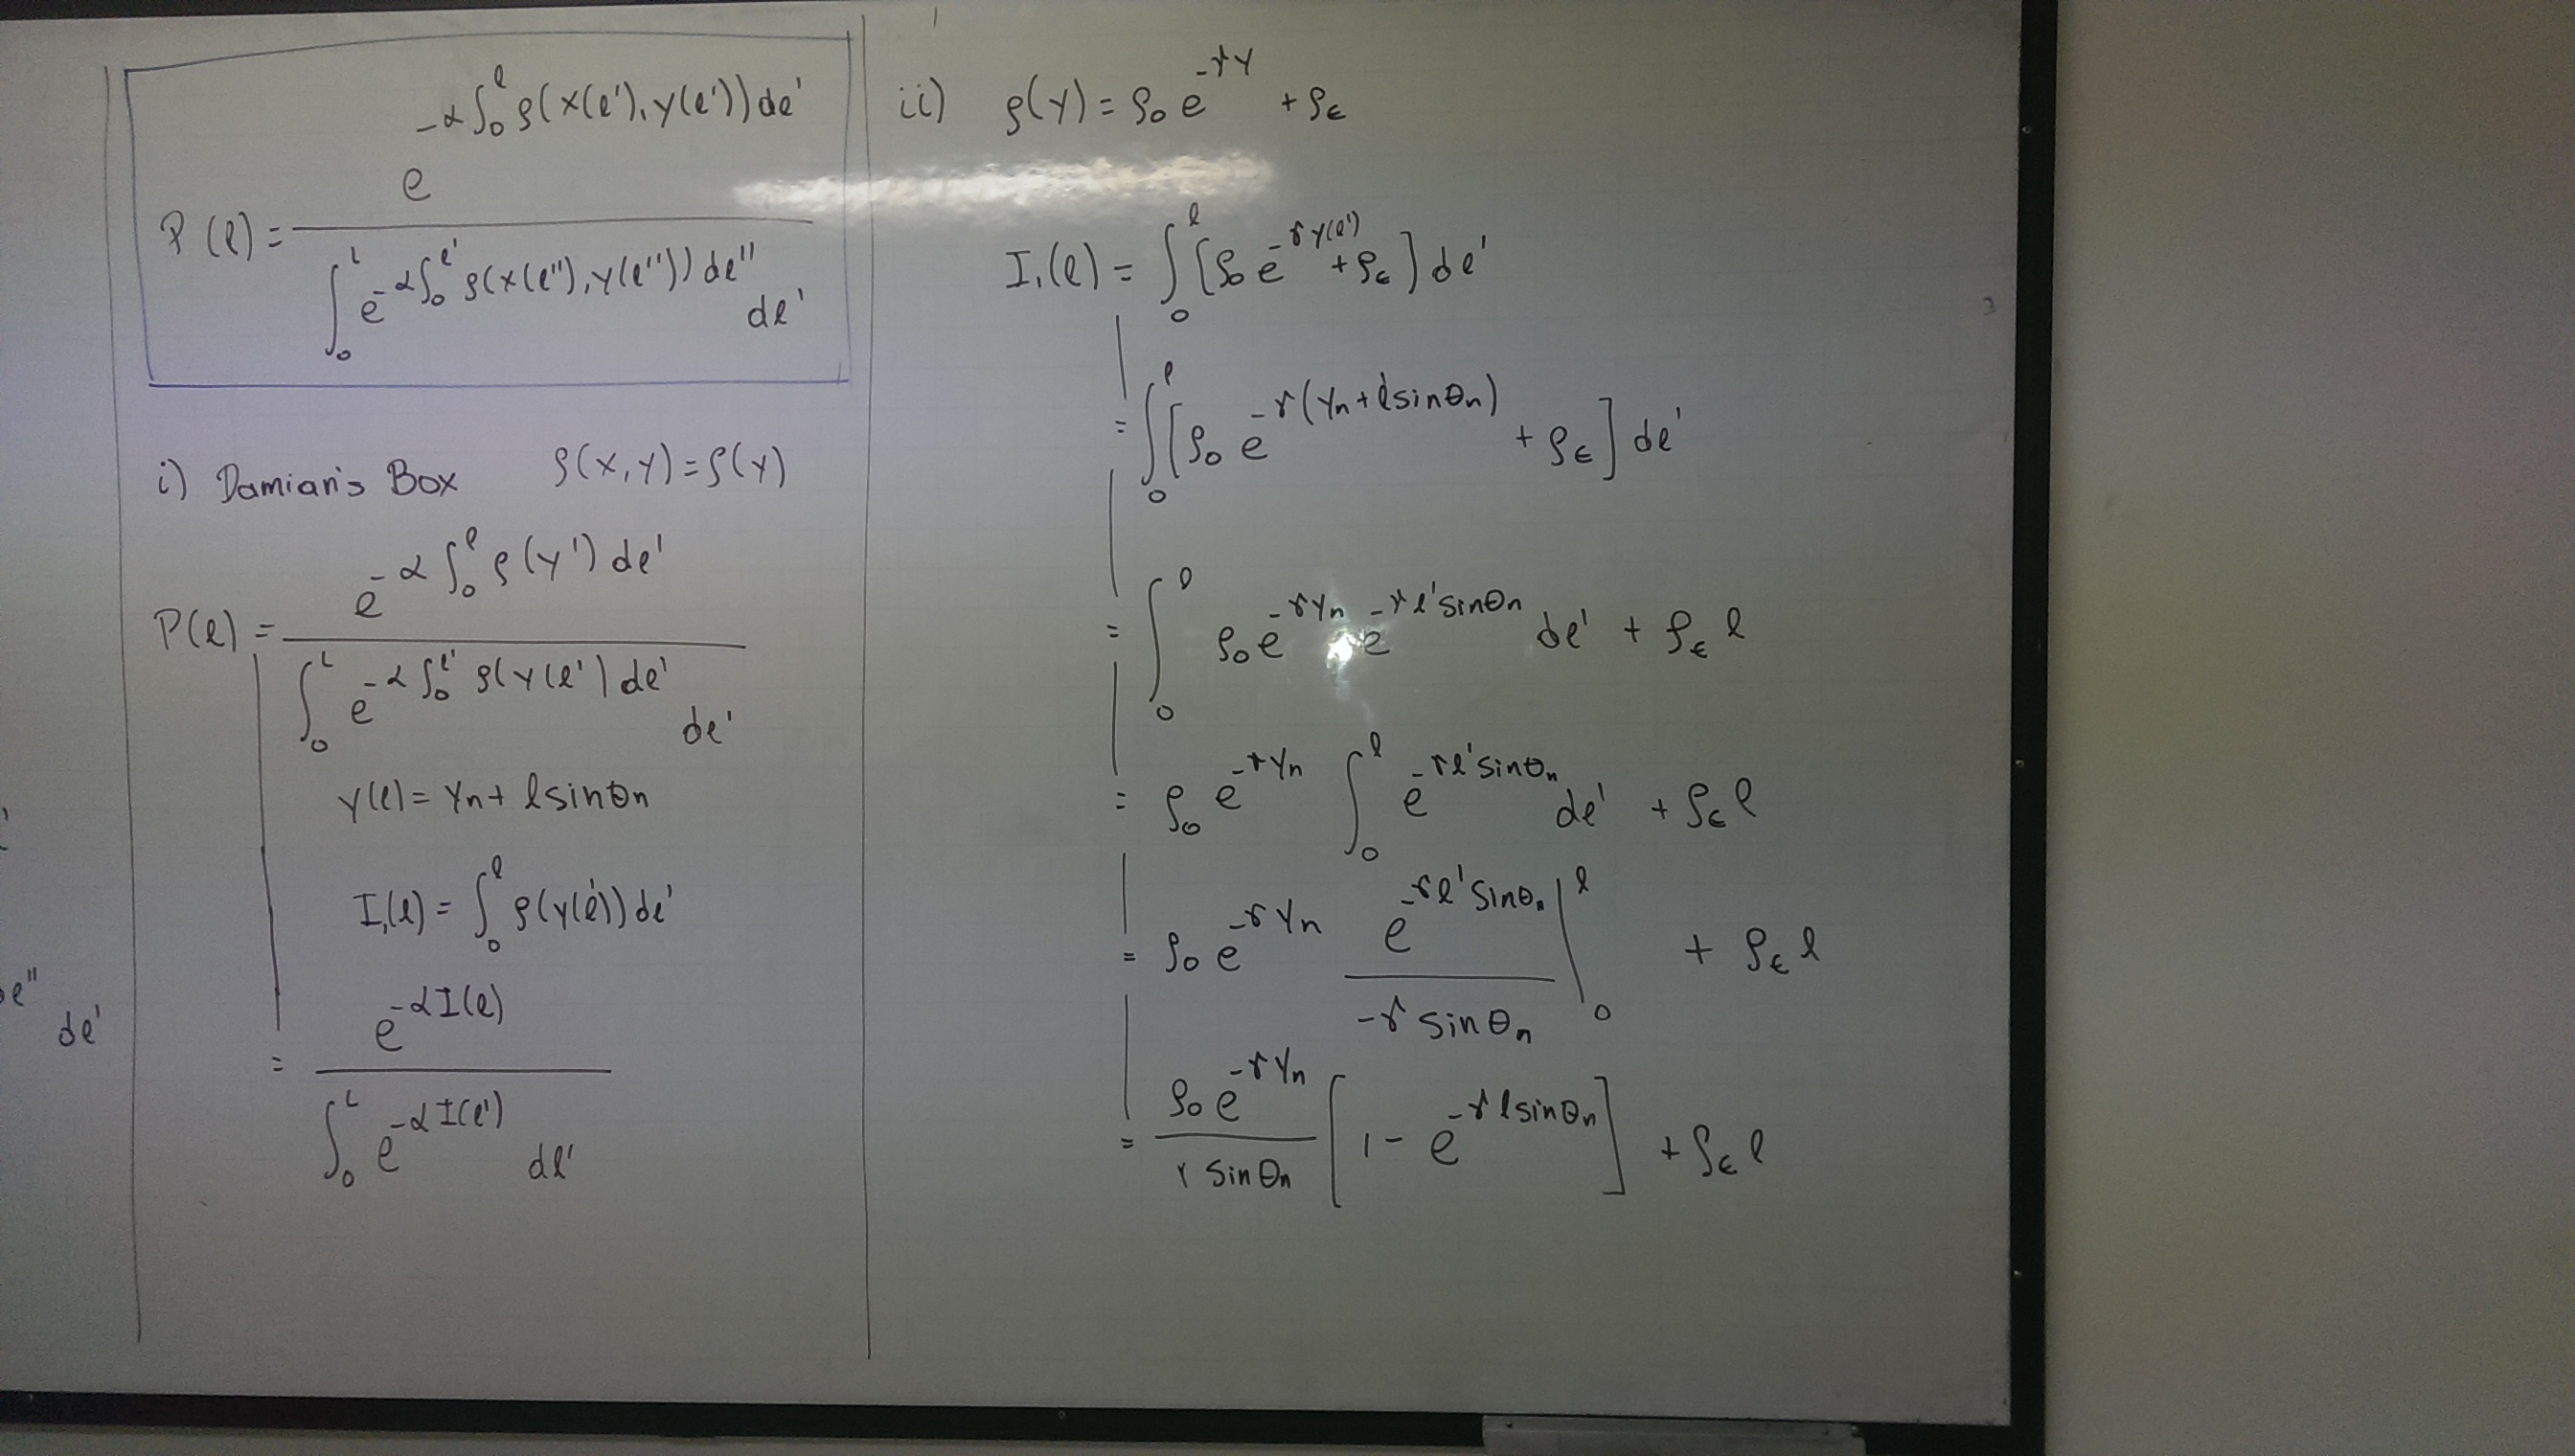 e"
de'
P(l) = e^{-α∫_0^l ρ(x(l'), y(l'))dl'} / ∫_0^L e^{-α∫_0^{l'} ρ(x(l''), y(l''))dl''} dl'
i) Damian's Box ρ(x,y)=ρ(y)
P(l) = e^{-α∫_0^l ρ(y')dl'} / ∫_0^L e^{-α∫_0^{l'} ρ(y(l')dl'} dl'
y(l) = yn + l sinθn
I₁(l) = ∫_0^l ρ(y(l'))dl'
= e^{-αI(l)} / ∫_0^L e^{-αI(l')} dl'
ii) ρ(y) = ρ₀ e^{-γy} + ρ_ϵ
I₁(l) = ∫_0^l [ρ₀ e^{-γy(l')} + ρ_ϵ] dl'
= ∫_0^l [ρ₀ e^{-γ(yn + l' sinθn)} + ρ_ϵ] dl'
= ∫_0^l ρ₀ e^{-γyn} e^{-γl' sinθn} dl' + ρ_ϵ l
= ρ₀ e^{-γyn} ∫_0^l e^{-γl' sinθn} dl' + ρ_ϵ l
= ρ₀ e^{-γyn} e^{-γl' sinθn} / -γ sinθn |_0^l + ρ_ϵ l
= ρ₀ e^{-γyn} / γ sinθn [1 - e^{-γl sinθn}] + ρ_ϵ l